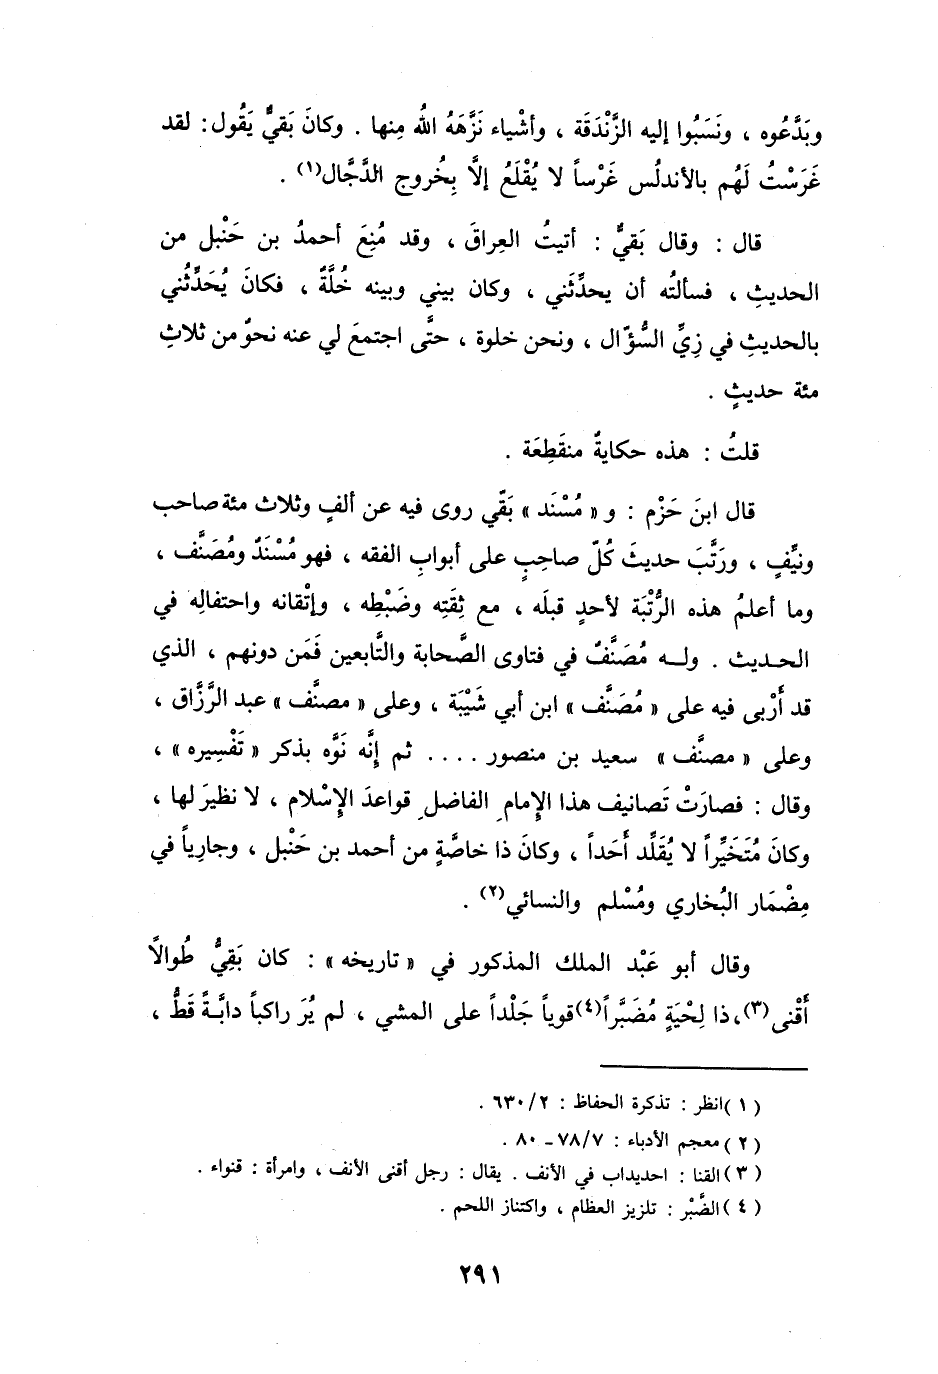 وبَدَّعُوه ، ونَسَبُوا إليه الزَّنْدَقَة ، وأشْياء نَزَّهَهُ اللهُ مِنها . وكانَ بَقيٌّ يَقُول : لقد
غَرَسْتُ لَهُم بالأندلُس غَرْساً لا يُقْلَعُ إلَّا بِخُروج الدَّجَّال(١) .
قال : وقال بَقيٌّ : أتيتُ العِراقَ ، وقد مُنِعَ أحمدُ بن حَنْبل من
الحديثِ ، فسألتُه أن يحدِّثَني ، وكان بيني وبينه خُلَّةٌ ، فكانَ يُحَدِّثُني
بالحديثِ في زِيِّ السُّؤّال ، ونحن خلوة ، حتَّى اجتمعَ لي عنه نحوٌ من ثلاثِ
مئة حديثٍ .
قلتُ : هذه حكايةٌ منقَطِعَة .
قال ابنَ حَزْم : و « مُسْنَد » بَقّي روى فيه عن ألفٍ وثلاث مئة صاحب
ونيِّفٍ ، ورَتَّبَ حديثَ كُلّ صاحِبٍ على أبوابِ الفقه ، فهو مُسْنَدٌ ومُصَنَّف ،
وما أعلمُ هذه الرُّتْبَة لأحدٍ قبلَه ، مع ثِقَتِه وضَبْطِه ، وإتْقانه واحتفالِه في
الحديث . وله مُصَنَّفٌ في فتاوى الصَّحابة والتَّابعين فَمَن دونهم ، الذي
قد أَرْبى فيه على « مُصَنَّف » ابن أبي شَيْبَة ، وعلى « مصنَّف » عبد الرَّزَّاق ،
وعلى « مصنَّف » سعيد بن منصور .... ثم إنَّه نَوَّه بذكر « تَفْسِيره » ،
وقال : فصارَتْ تَصانيف هذا الإمامِ الفاضلِ قواعدَ الإسْلام ، لا نظيرَ لها ،
وكانَ مُتَخَيِّراً لا يُقَلِّد أَحَداً ، وكانَ ذا خاصَّةٍ من أحمد بن حَنْبل ، وجارِياً في
مِضْمَار البُخاري ومُسْلم والنسائي(٢) .
وقال أبو عَبْد الملك المذكور في « تاريخه » : كان بَقِيُّ طُوالاً
أَقْنى(٣)، ذا لِحْيَةٍ مُضَبَّراً(٤) قوياً جَلْداً على المشي ، لم يُرَ راكباً دابَّةً قَطُّ ،
(١) انظر : تذكرة الحفاظ : ٢/ ٦٣٠ .
(٢) معجم الأدباء : ٧/ ٧٨ ـ ٨٠ .
(٣) القنا : احديداب في الأنف . يقال : رجل أقنى الأنف ، وامرأة : قنواء .
(٤) الضَّبْر : تلزيز العظام ، واكتناز اللحم .
٢٩١